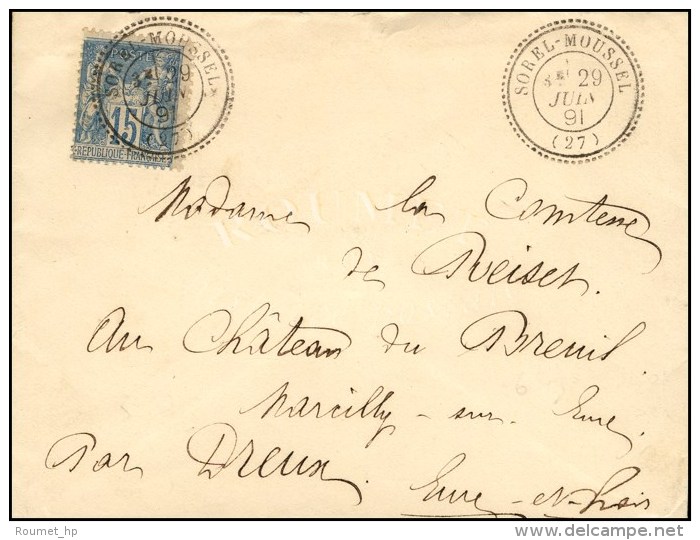 POSTES
15
REPUBLIQUE FRANÇAISE
SOREL-MOUSSEL
29
JUIN
91
SOREL-MOUSSEL
29
JUIN
91
(27)
Madame la Comtesse
de Reiset.
Au Château du Breuil
Marcilly-sur-Eure.
Par Dreux. Eure-et-Loir
Roumet_hp
delcampe.net